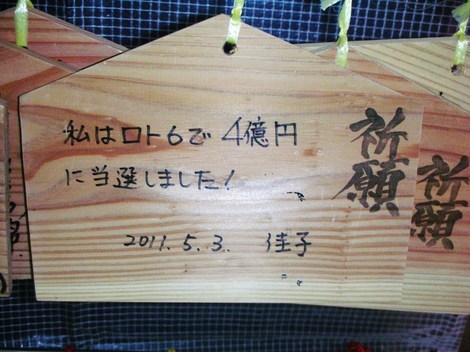 私はロト6で4億円
に当選しました!
2011.5.3. 佳子
祈願
祈願